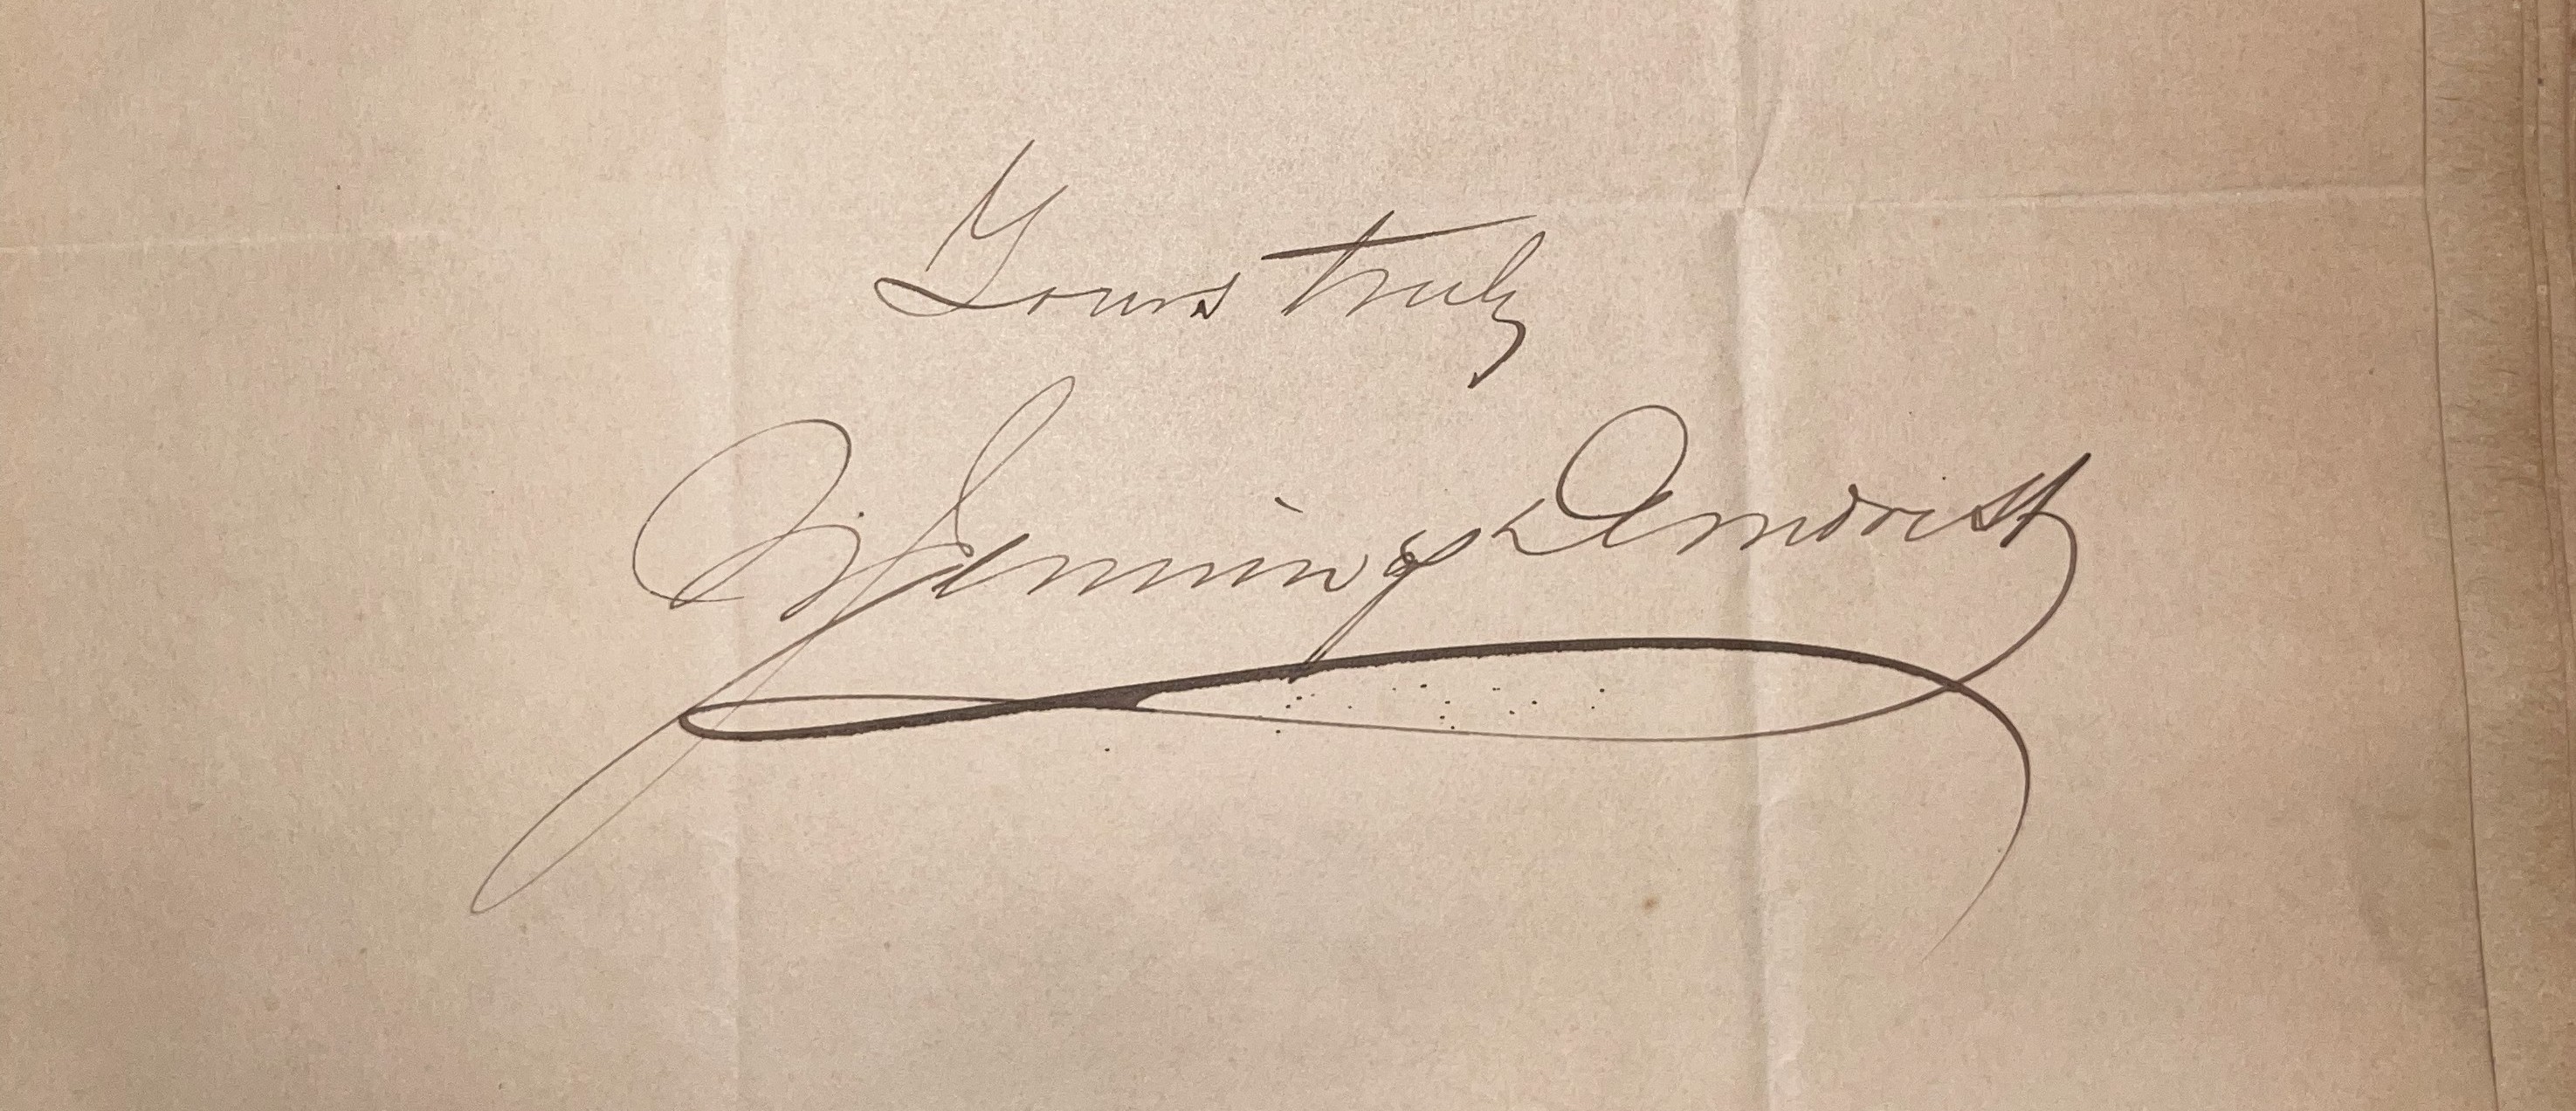 Yours truly
W. Jennings Demorest